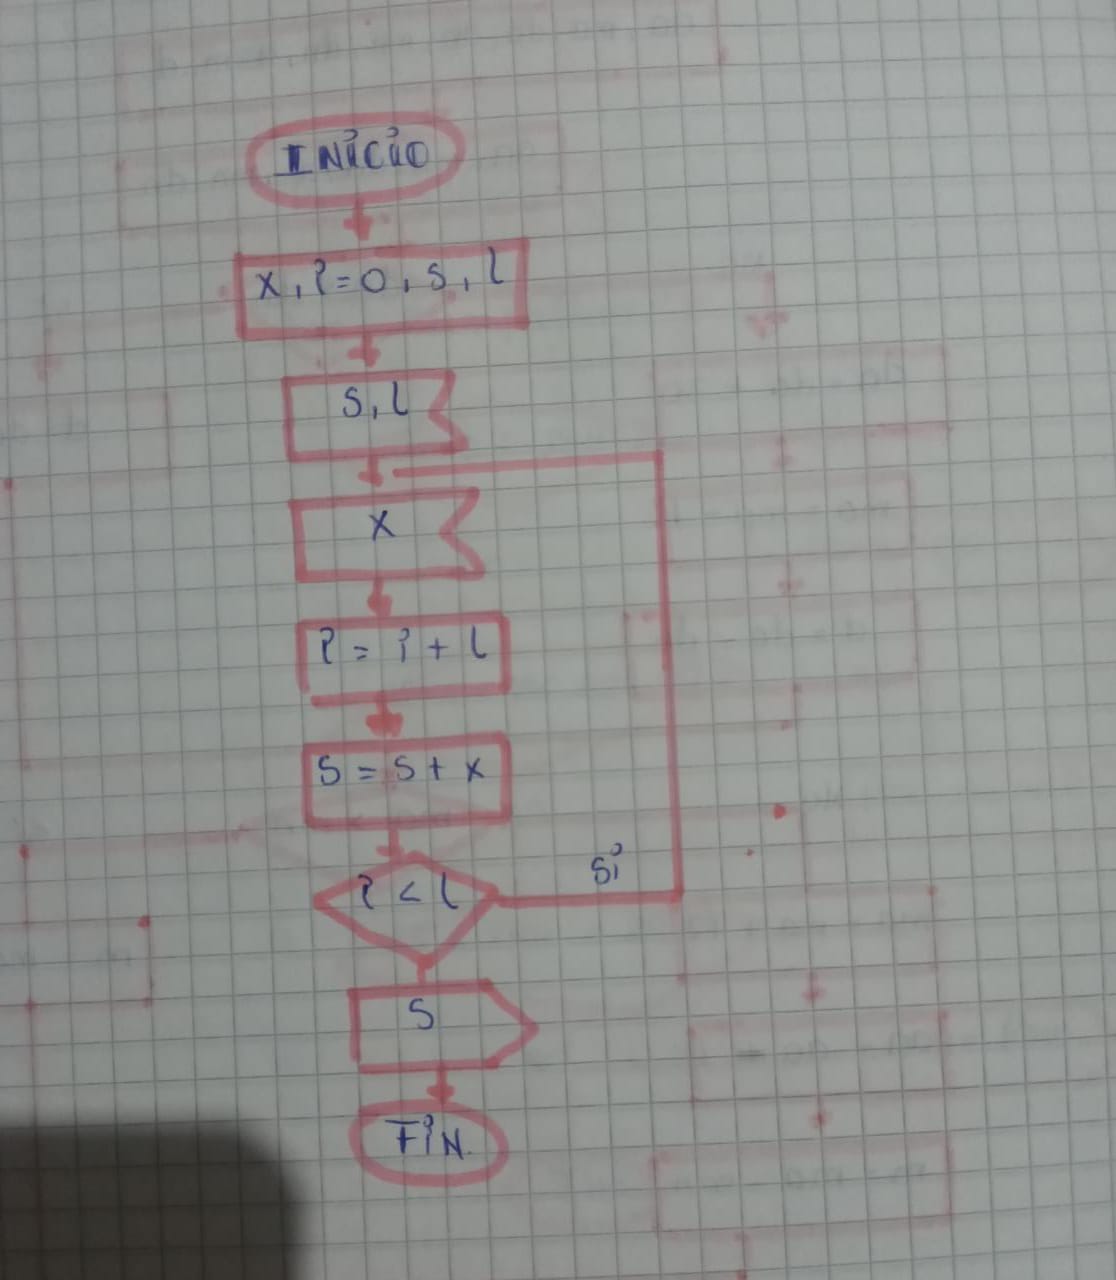 INICIO
x, i=0, s, l
s, l
x
i = i + l
s = s + x
i < l
si
s
FiN.